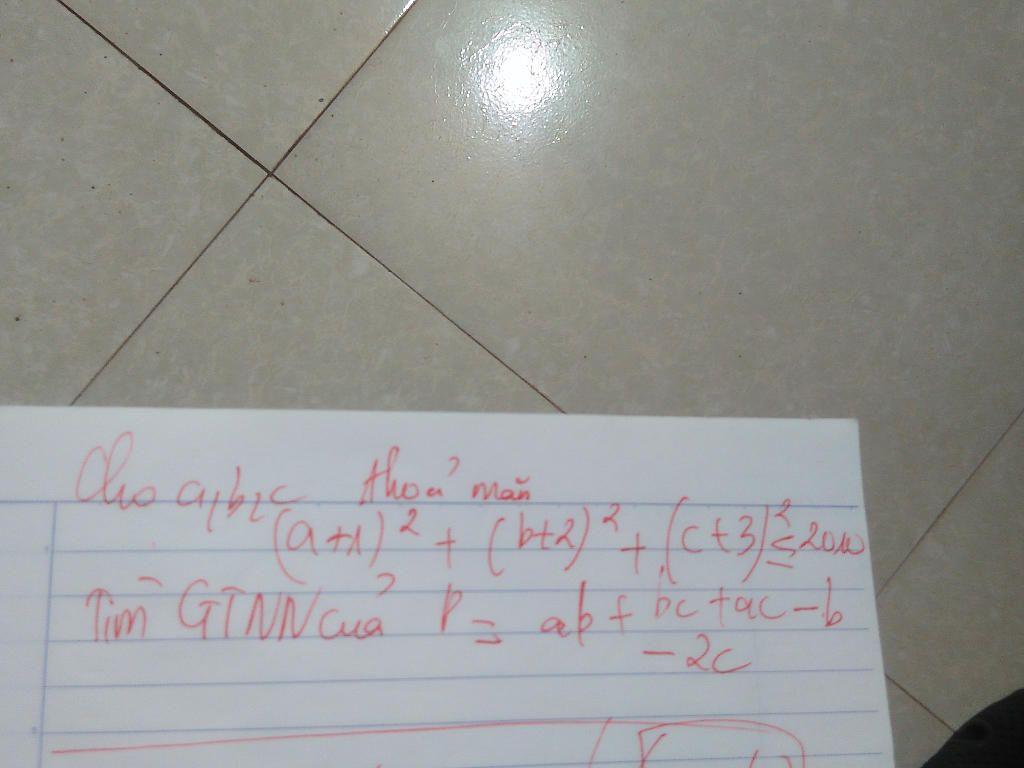 Cho a, b, c thoả mãn
(a+1)² + (b+2)² + (c+3)² ≤ 2010
Tìm GTNN của P = ab + bc + ac - b
- 2c